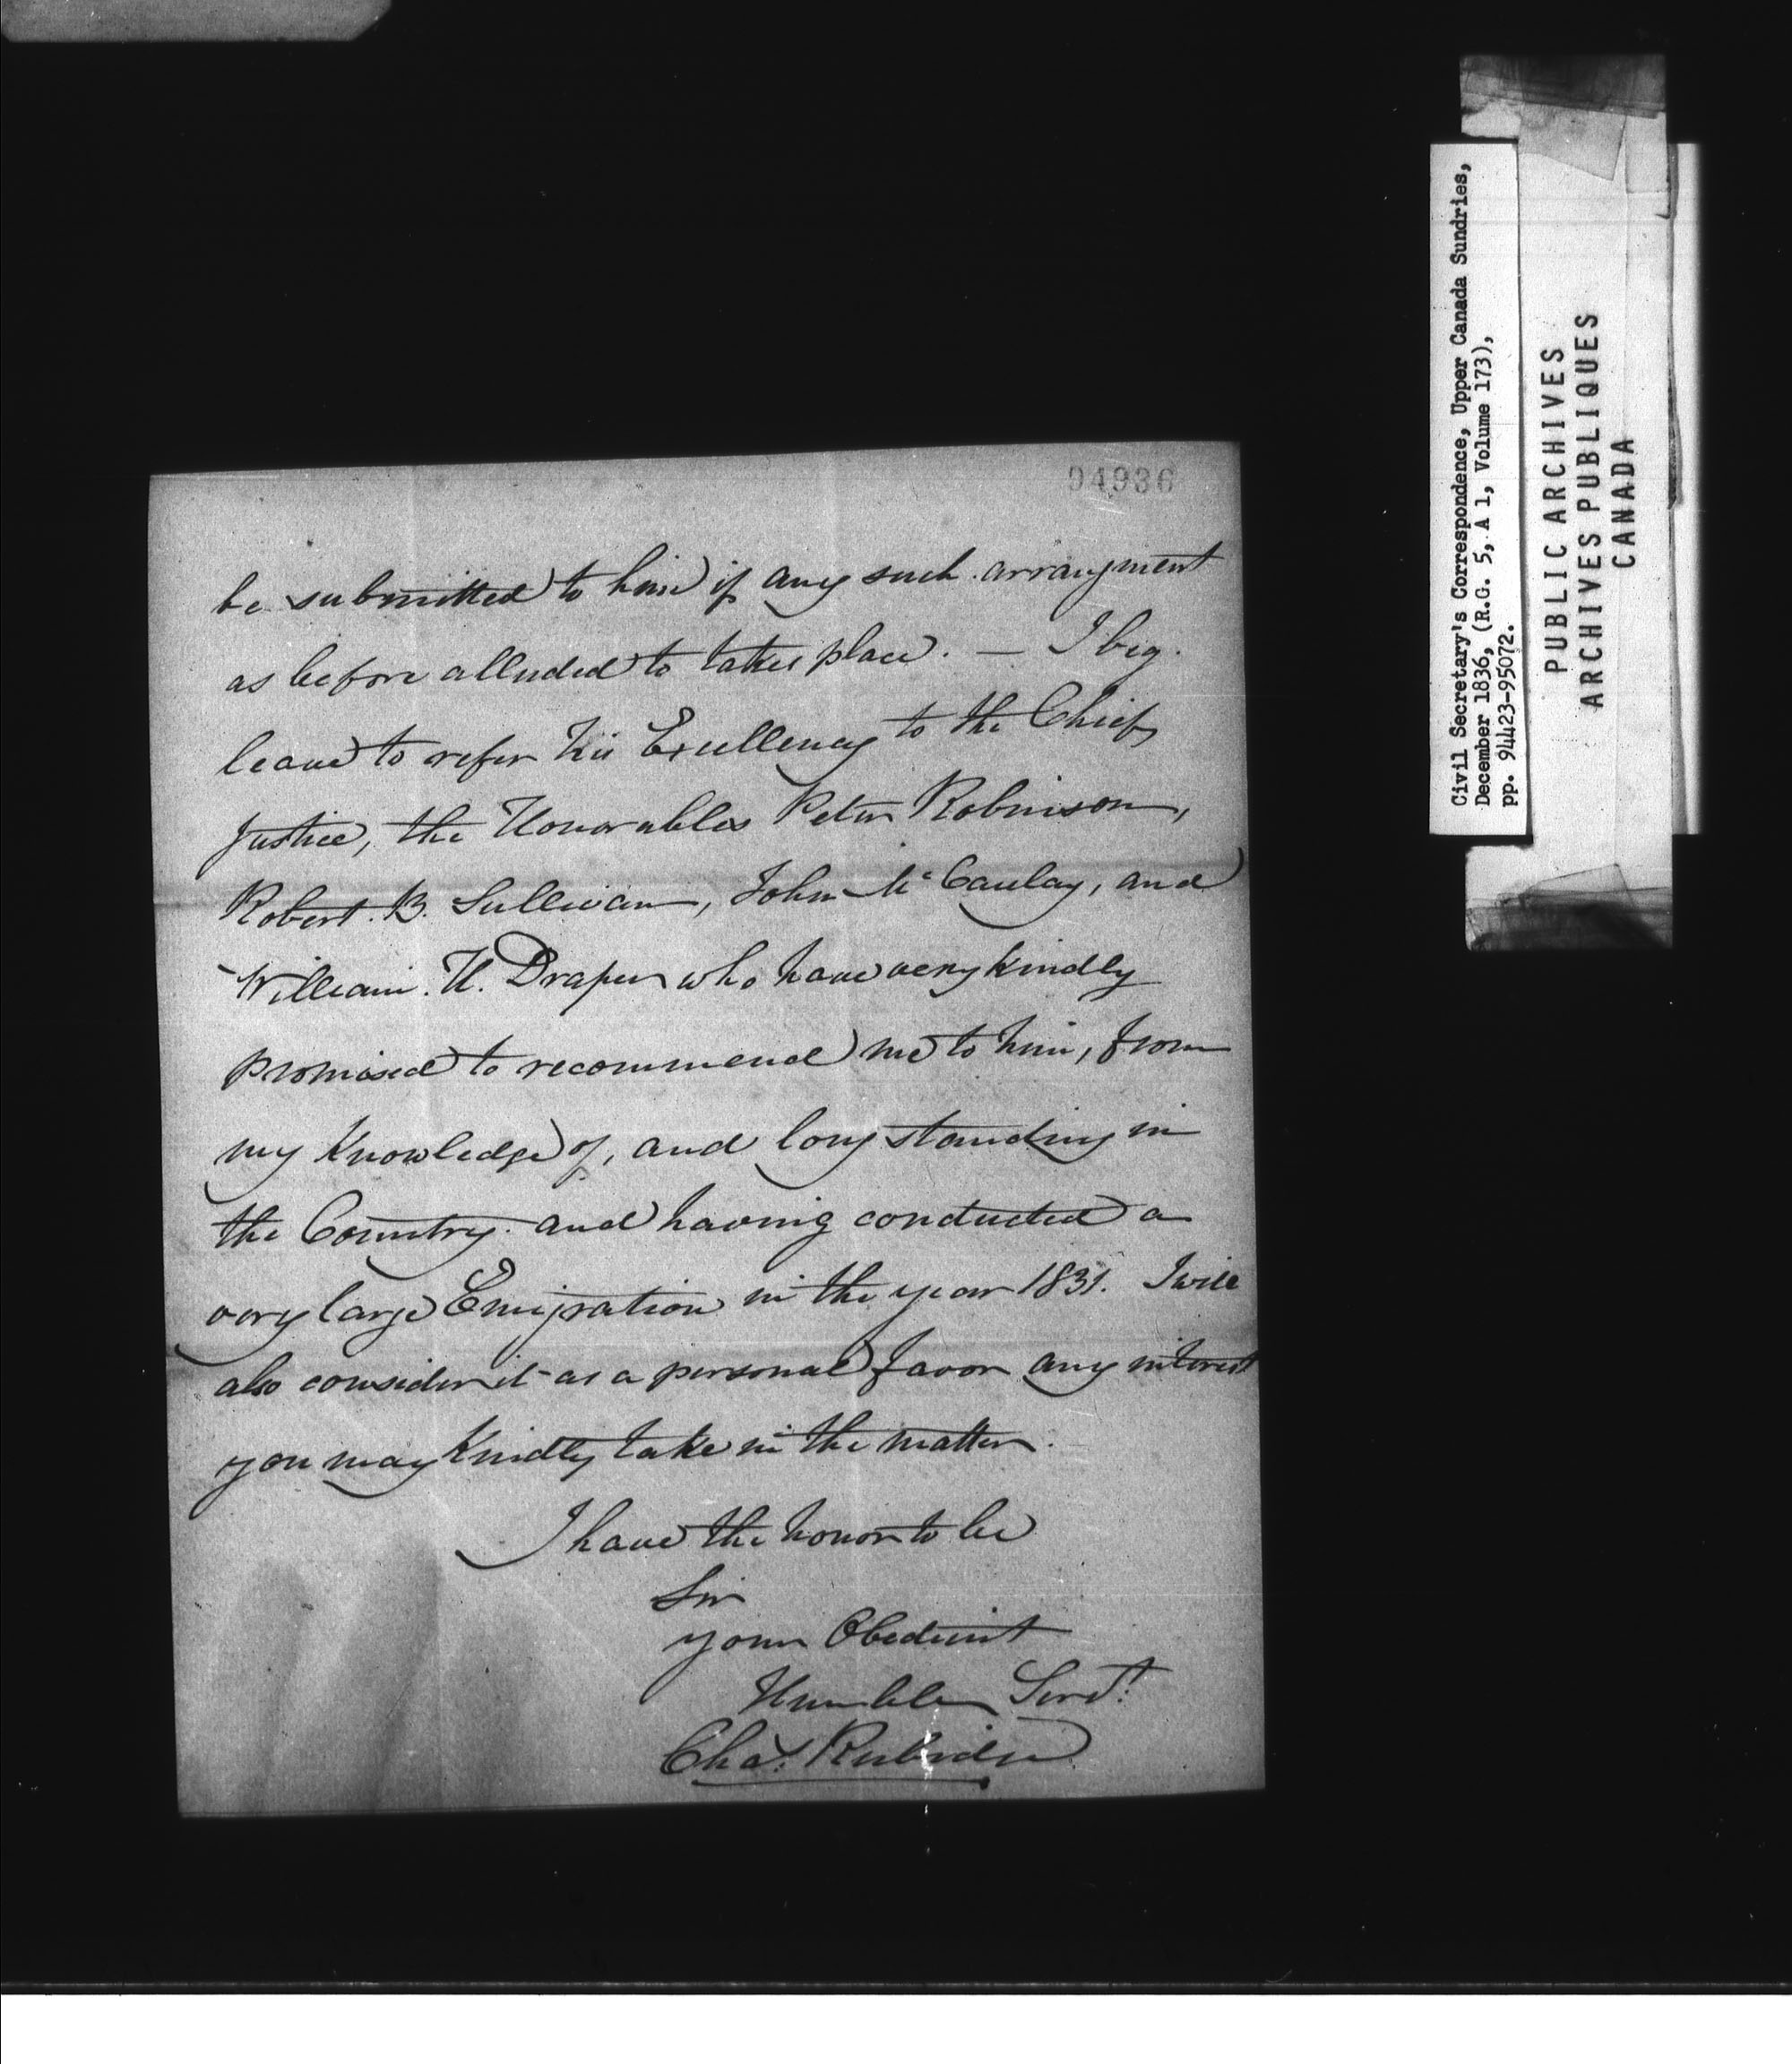 94936
be submitted to him if any such arrangment
as before alluded to takes place. — I beg
leave to refer His Excellency to the Chief
Justice, the Honorables Peter Robinson,
Robert. B. Sullivan, John McCaulay, and
William. H. Draper who have very kindly
promised to recommend me to him, from
my Knowledge of, and long standing in
the Country. and having conducted a
very large Emigration in the year 1831. I will
also consider it as a personal favor any interest
you may Kindly take in the matter.
I have the honor to be
Sir
your Obedient
Humble Servt.
Chas. Rubidge
Civil Secretary's Correspondence, Upper Canada Sundries,
December 1836, (R.G. 5, A 1, Volume 173),
pp. 94423-95072.
PUBLIC ARCHIVES
ARCHIVES PUBLIQUES
CANADA